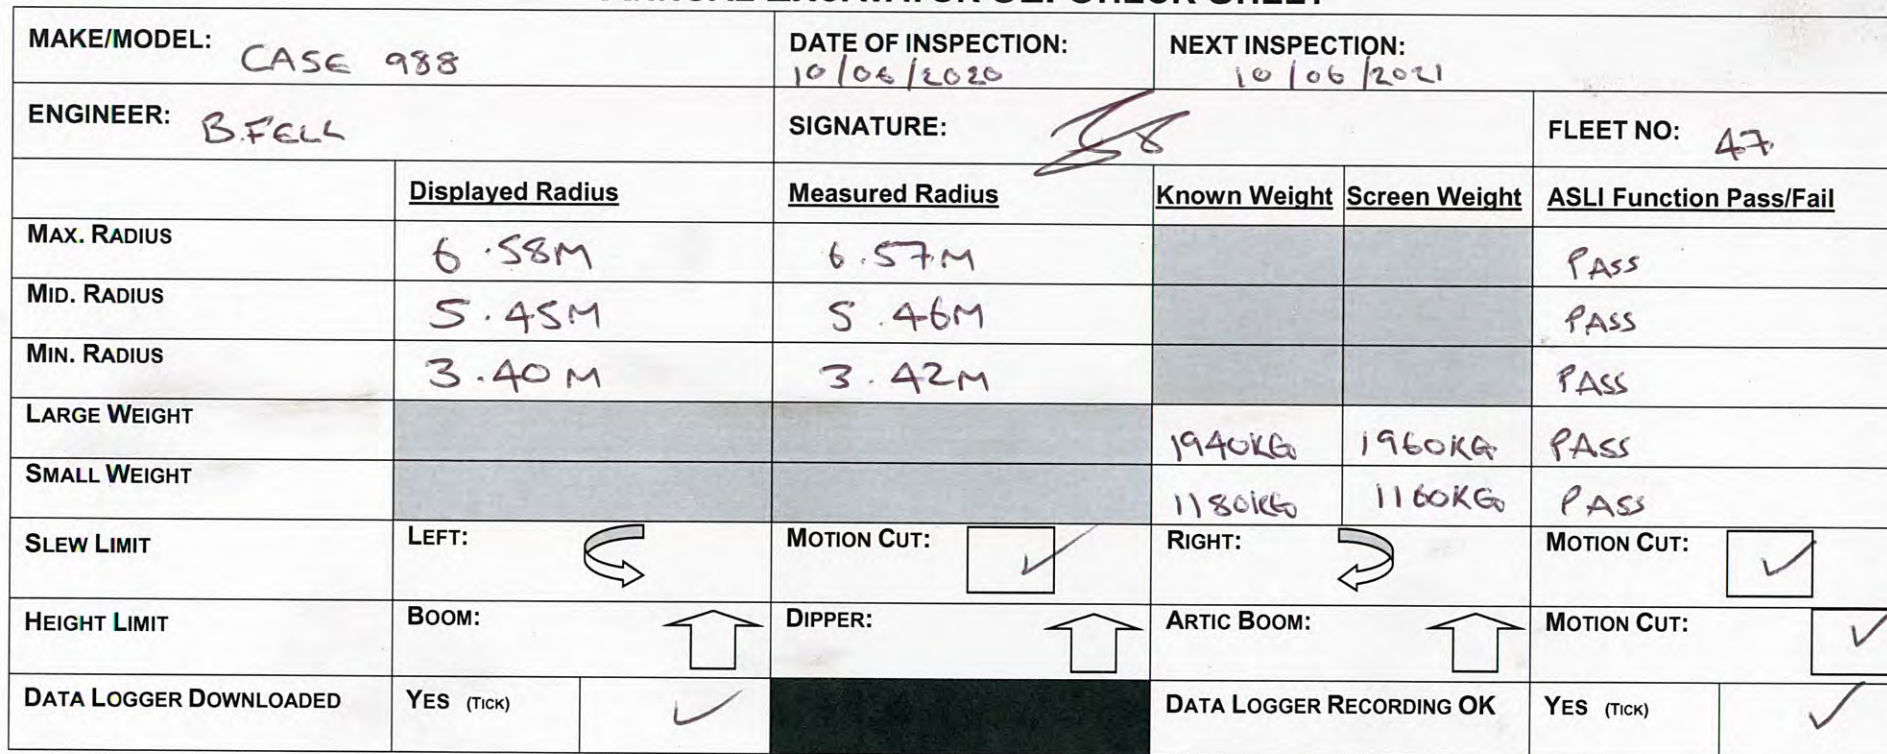 MAKE/MODEL: CASE 988
DATE OF INSPECTION: 10/06/2020
NEXT INSPECTION: 10/06/2021
ENGINEER: B.FELL
SIGNATURE:
FLEET NO: 47
Displayed Radius Measured Radius Known Weight Screen Weight ASLI Function Pass/Fail
MAX. RADIUS 6.58M 6.57M PASS
MID. RADIUS 5.45M 5.46M PASS
MIN. RADIUS 3.40M 3.42M PASS
LARGE WEIGHT 1940KG 1960KG PASS
SMALL WEIGHT 1180KG 1160KG PASS
SLEW LIMIT LEFT: MOTION CUT: ✓ RIGHT: MOTION CUT: ✓
HEIGHT LIMIT BOOM: DIPPER: ARTIC BOOM: MOTION CUT: ✓
DATA LOGGER DOWNLOADED YES (TICK) ✓ DATA LOGGER RECORDING OK YES (TICK) ✓